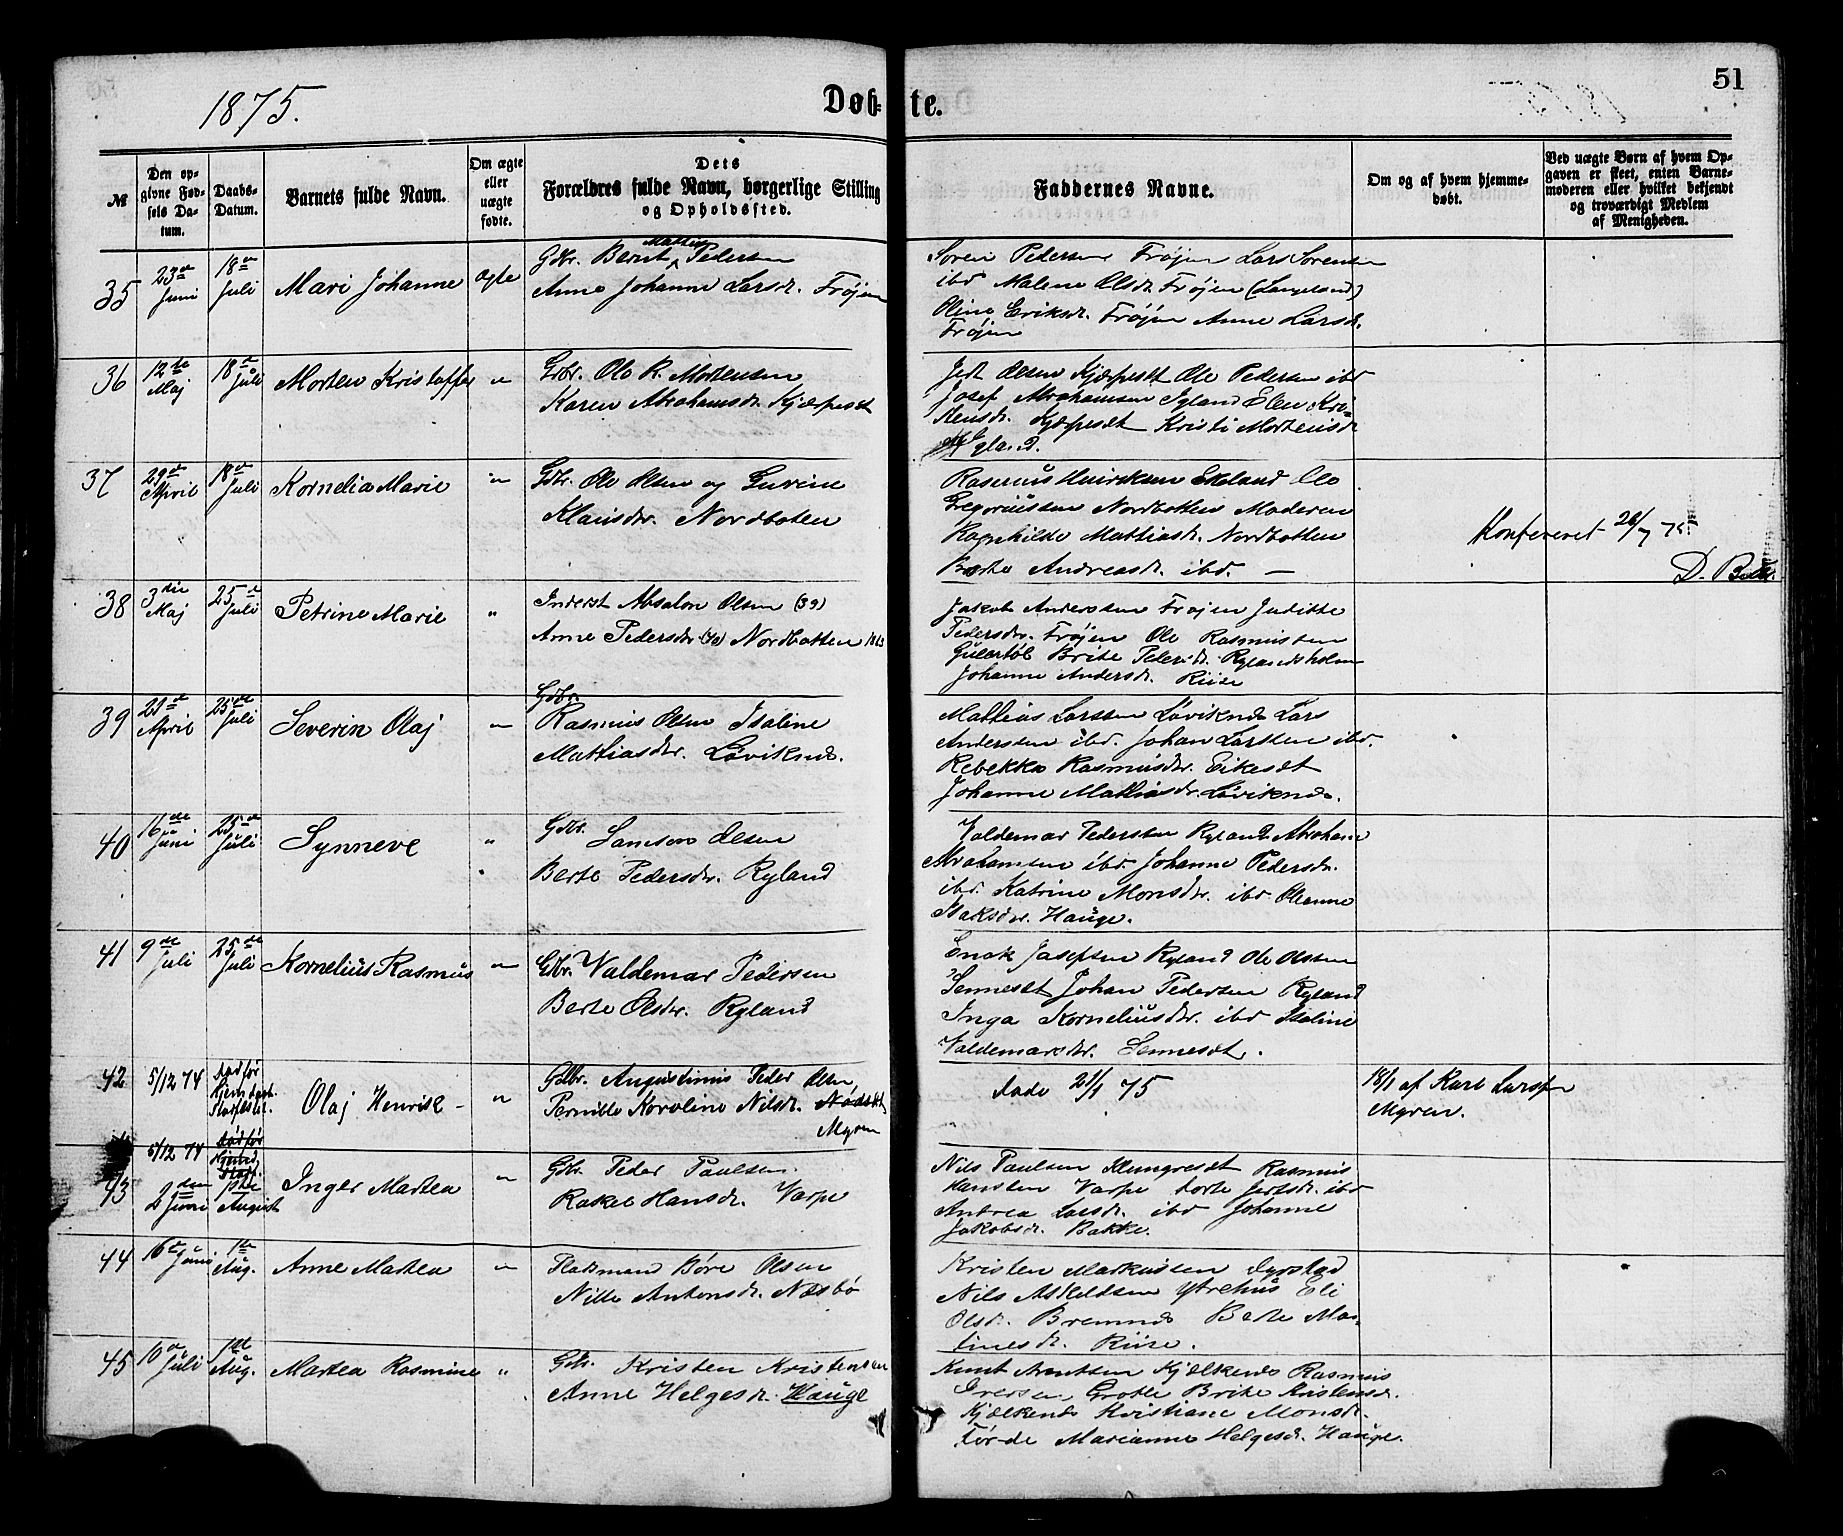 51
1875.
Døb-te.
№
Den op-
givne Fød-
sels Da-
tum.
Daabs-
Datum.
Barnets fulde Navn.
Om ægte
eller
uægte
fødte.
Dets
Forældres fulde Navn, borgerlige Stilling
og Opholdssted.
Faddernes Navne.
Om og af hvem hjemme-
døbt.
Ved uægte Børn af hvem Op-
gaven er skeet, enten Barne-
moderen eller hvilket bekjendt
og troværdigt Medlem
af Menigheden.
35
23de
Juni
18de
Juli
Mari Johanne
Ægte
Gdbr. Bernt Mathias Pedersen
Anne Johanne Larsdr. Frøjen
Søren Pedersen Frøjen Lars Sørensen
ibd Malene Olsdr. Frøjen (Langeland)
Oline Eriksdr. Frøjen Anne Larsdr.
Frøjen
36
12te
Maj
18de
Juli
Morten Kristoffer
"
Gdbr. Ole R. Mortensen
Karen Abrahamsdr. Kjærpeset
Jert Olsen Kjærpeset Ole Pedersen ibd
Josef Abrahamsen Igland Elen Kri-
stensdr. Kjærpeset Kristi Mortensdr
Igland.
37
29de
April
18de
Juli
Kornelia Marie
"
Gdbr. Ole Olsen og Gurine
Klausdr. Nordboten
Rasmus Henriksen Ekeland Ole
Gregoriussen Nordbotten Moderen
Ragnhilde Mathiasdr. Nordbotten
Berte Andreasdr. ibd. —
Konfereret 26/7 75.
D. Bull
38
3die
Maj
25de
Juli
Petrine Marie
"
Inderst Absalon Olsen (39)
Anne Pedersdr. (40) Nordbotten 1863
Jakob Anderssen Frøjen Juditte
Pedersdr. Frøjen Ole Rasmussen
Gulestøl Brite Pedersdr. Rylandsholm
Johanne Andersdr. Riise
39
29de
April
25de
Juli
Severin Olaj
"
Gdbr.
Rasmus Olsen Isaline
Mathiasdr. Løviknæs.
Mathias Larssen Løviknæs Lars
Anderssen ibd. Johan Larssen ibd.
Rebekka Rasmusdr. Eikeset
Johanne Mathiasdr. Løviknæs.
40
16de
Juni
25de
Juli
Synneve
"
Gdbr. Samson Olsen
Berte Pedersdr. Ryland
Valdemar Pederssen Ryland Abraham
Abrahamsen ibd. Johanne Pedersdr.
ibd. Katrine Monsdr. ibd Oleanne
Isaksdr. Hauge.
41
9de
Juli
25de
Juli
Kornelius Rasmus
"
Gdbr. Valdemar Pedersen
Berte Olsdr. Ryland
Enok Josefsen Ryland Ole Olssen
Senneset Johan Pedersen Ryland
Inga Korneliusdr. ibd Isaline
Valdemarsdr. Senneset.
42
5/12 74
Olaj Henrik
"
Gdbr. Augustinus Peder Olsen
Pernille Karoline Nilsdr.
Myren
døde 21/1 75
18/1 af Karl Larssen
Myren.
5/12 74
43
2den
Juni
1ste
August
Inger Martea
"
Gdbr. Peder Paulsen
Rakel Hansdr. Varpe
Nils Paulsen Klungreset Rasmus
Hanssen Varpe Dorte Jertsdr. ibd
Andrea Larsdr. ibd Johanne
Jakobsdr. Bakke.
44
16de Juni
1ste
Aug.
Anne Martea
"
Pladsmand Børe Olsen
Nille Antonsdr. Næsbø
Kristen Markussen Dyrstad
Nils Askeldsen Ytrehus Eli
Olsdr. Bremnæs Berte Mar-
tinesdr. Riise.
45
10de
Juli
1ste
Aug.
Martea Rasmine
"
Gdbr. Kristen Kristensen
Anne Helgesdr. Hauge
Knut Arentsen Kjelkenes Rasmus
Iversen Grotle Brite Kristensdr.
Kjelkenes Kristiane Monsdr.
Førde Marianne Helgesdr. Hauge.